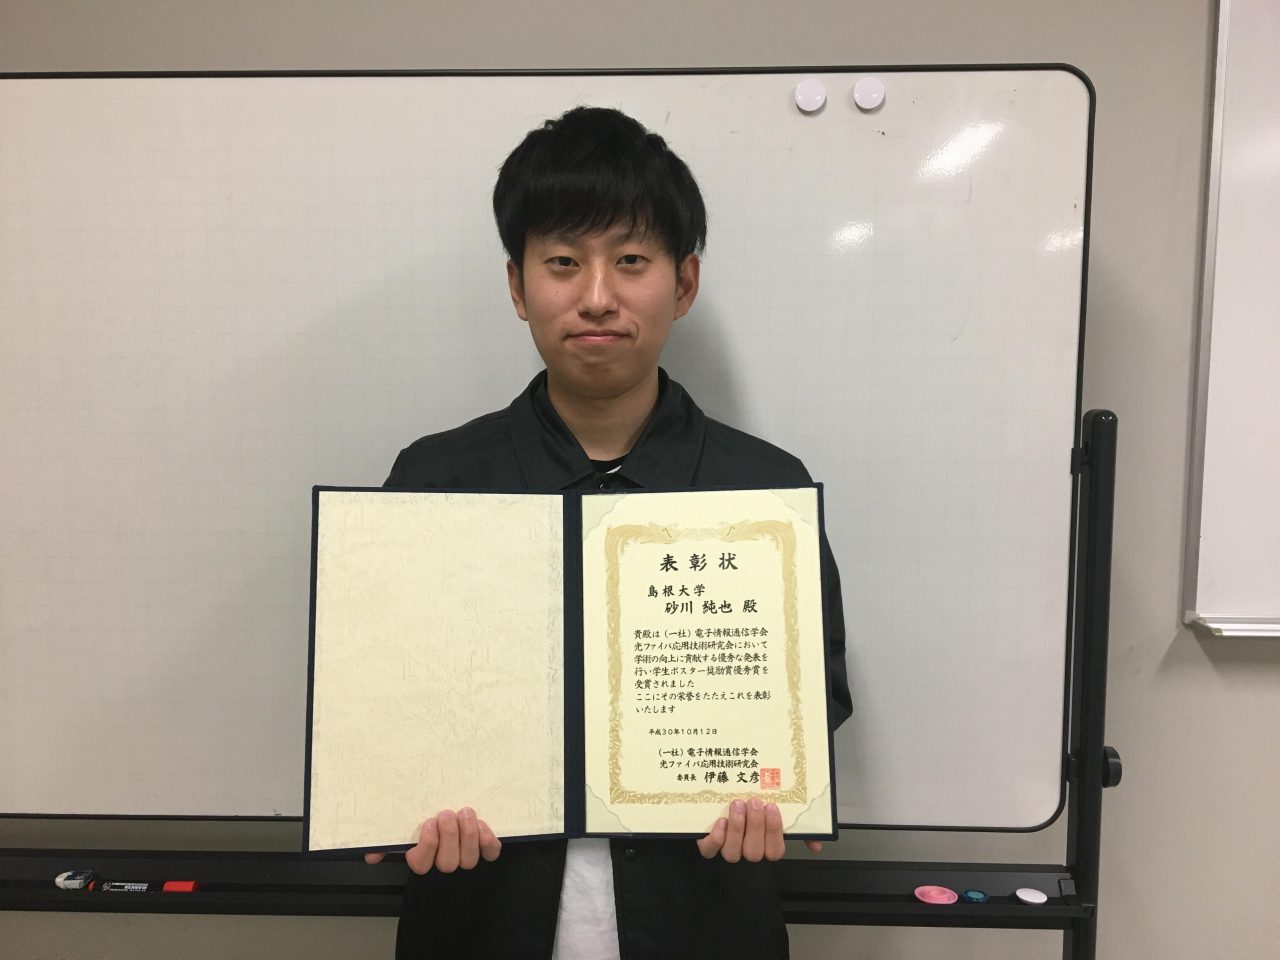 表彰状
島根大学
砂川 純也 殿
貴殿は(一社)電子情報通信学会
光ファイバ応用技術研究会において
学術の向上に貢献する優秀な発表を
行い学生ポスター奨励賞優秀賞を
受賞されました
ここにその栄誉をたたえこれを表彰
いたします
平成30年10月12日
(一社)電子情報通信学会
光ファイバ応用技術研究会
委員長 伊藤 文彦